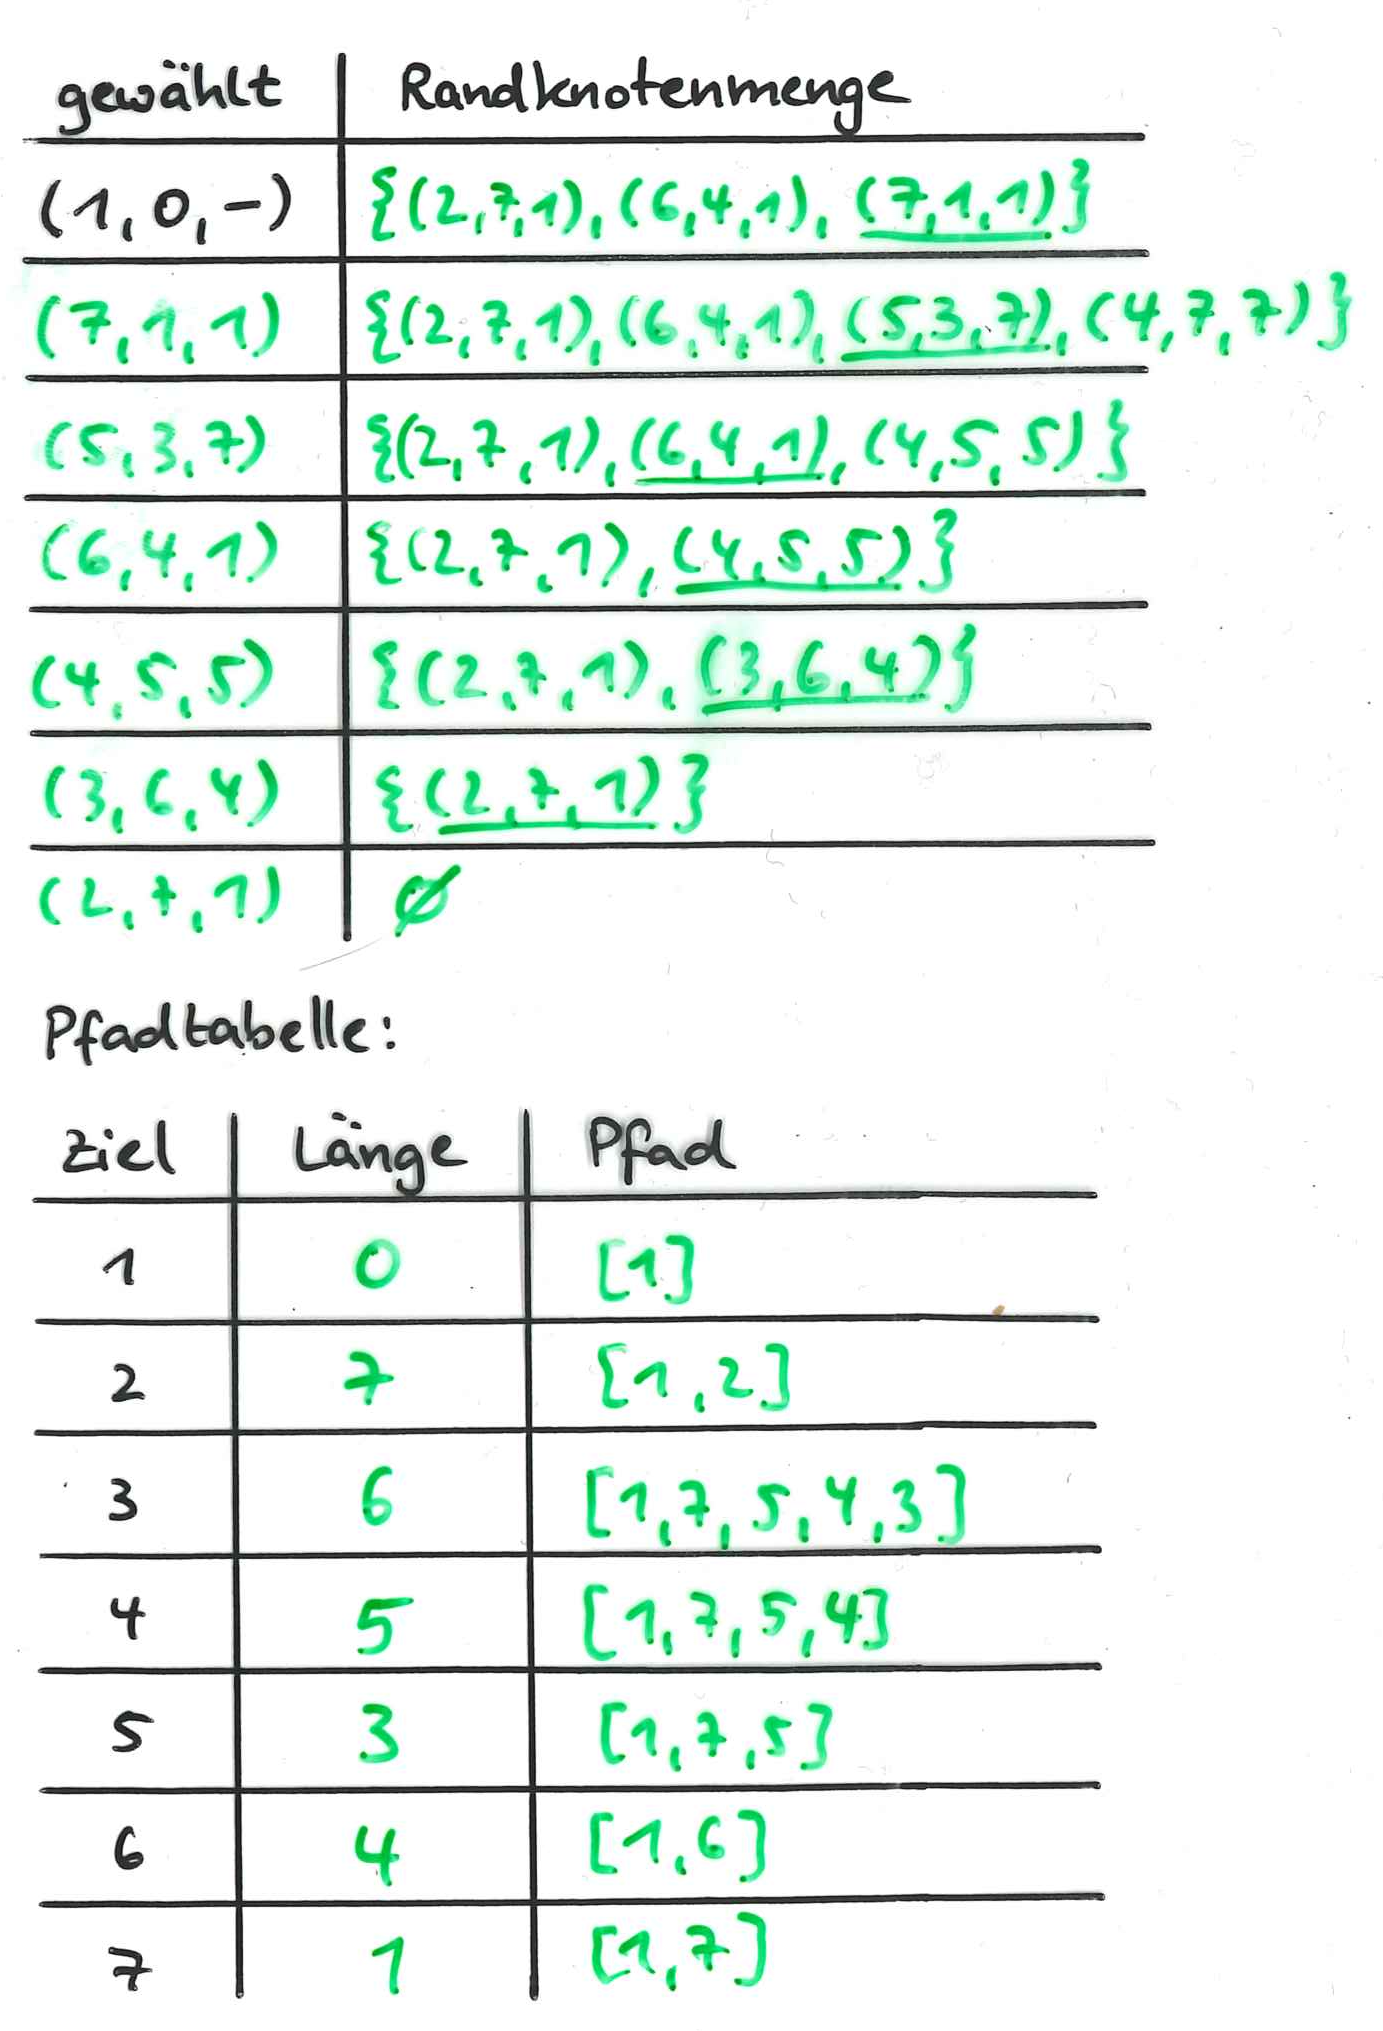 gewählt Randknotenmenge
(1,0,-) {(2,7,1),(6,4,1),(7,1,1)}
(7,1,1) {(2,7,1),(6,4,1),(5,3,7),(4,7,7)}
(5,3,7) {(2,7,1),(6,4,1),(4,5,5)}
(6,4,1) {(2,7,1),(4,5,5)}
(4,5,5) {(2,7,1),(3,6,4)}
(3,6,4) {(2,7,1)}
(2,7,1) ∅
Pfadtabelle:
Ziel Länge Pfad
1 0 [1]
2 7 [1,2]
3 6 [1,7,5,4,3]
4 5 [1,7,5,4]
5 3 [1,7,5]
6 4 [1,6]
7 1 [1,7]